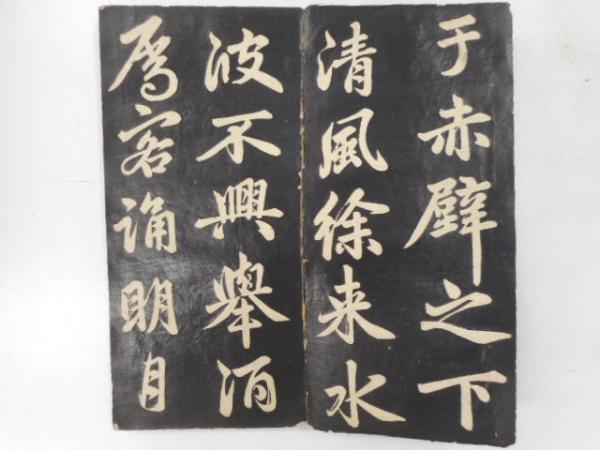 于赤壁之下
清風徐来水
波不興舉酒
属客誦明月